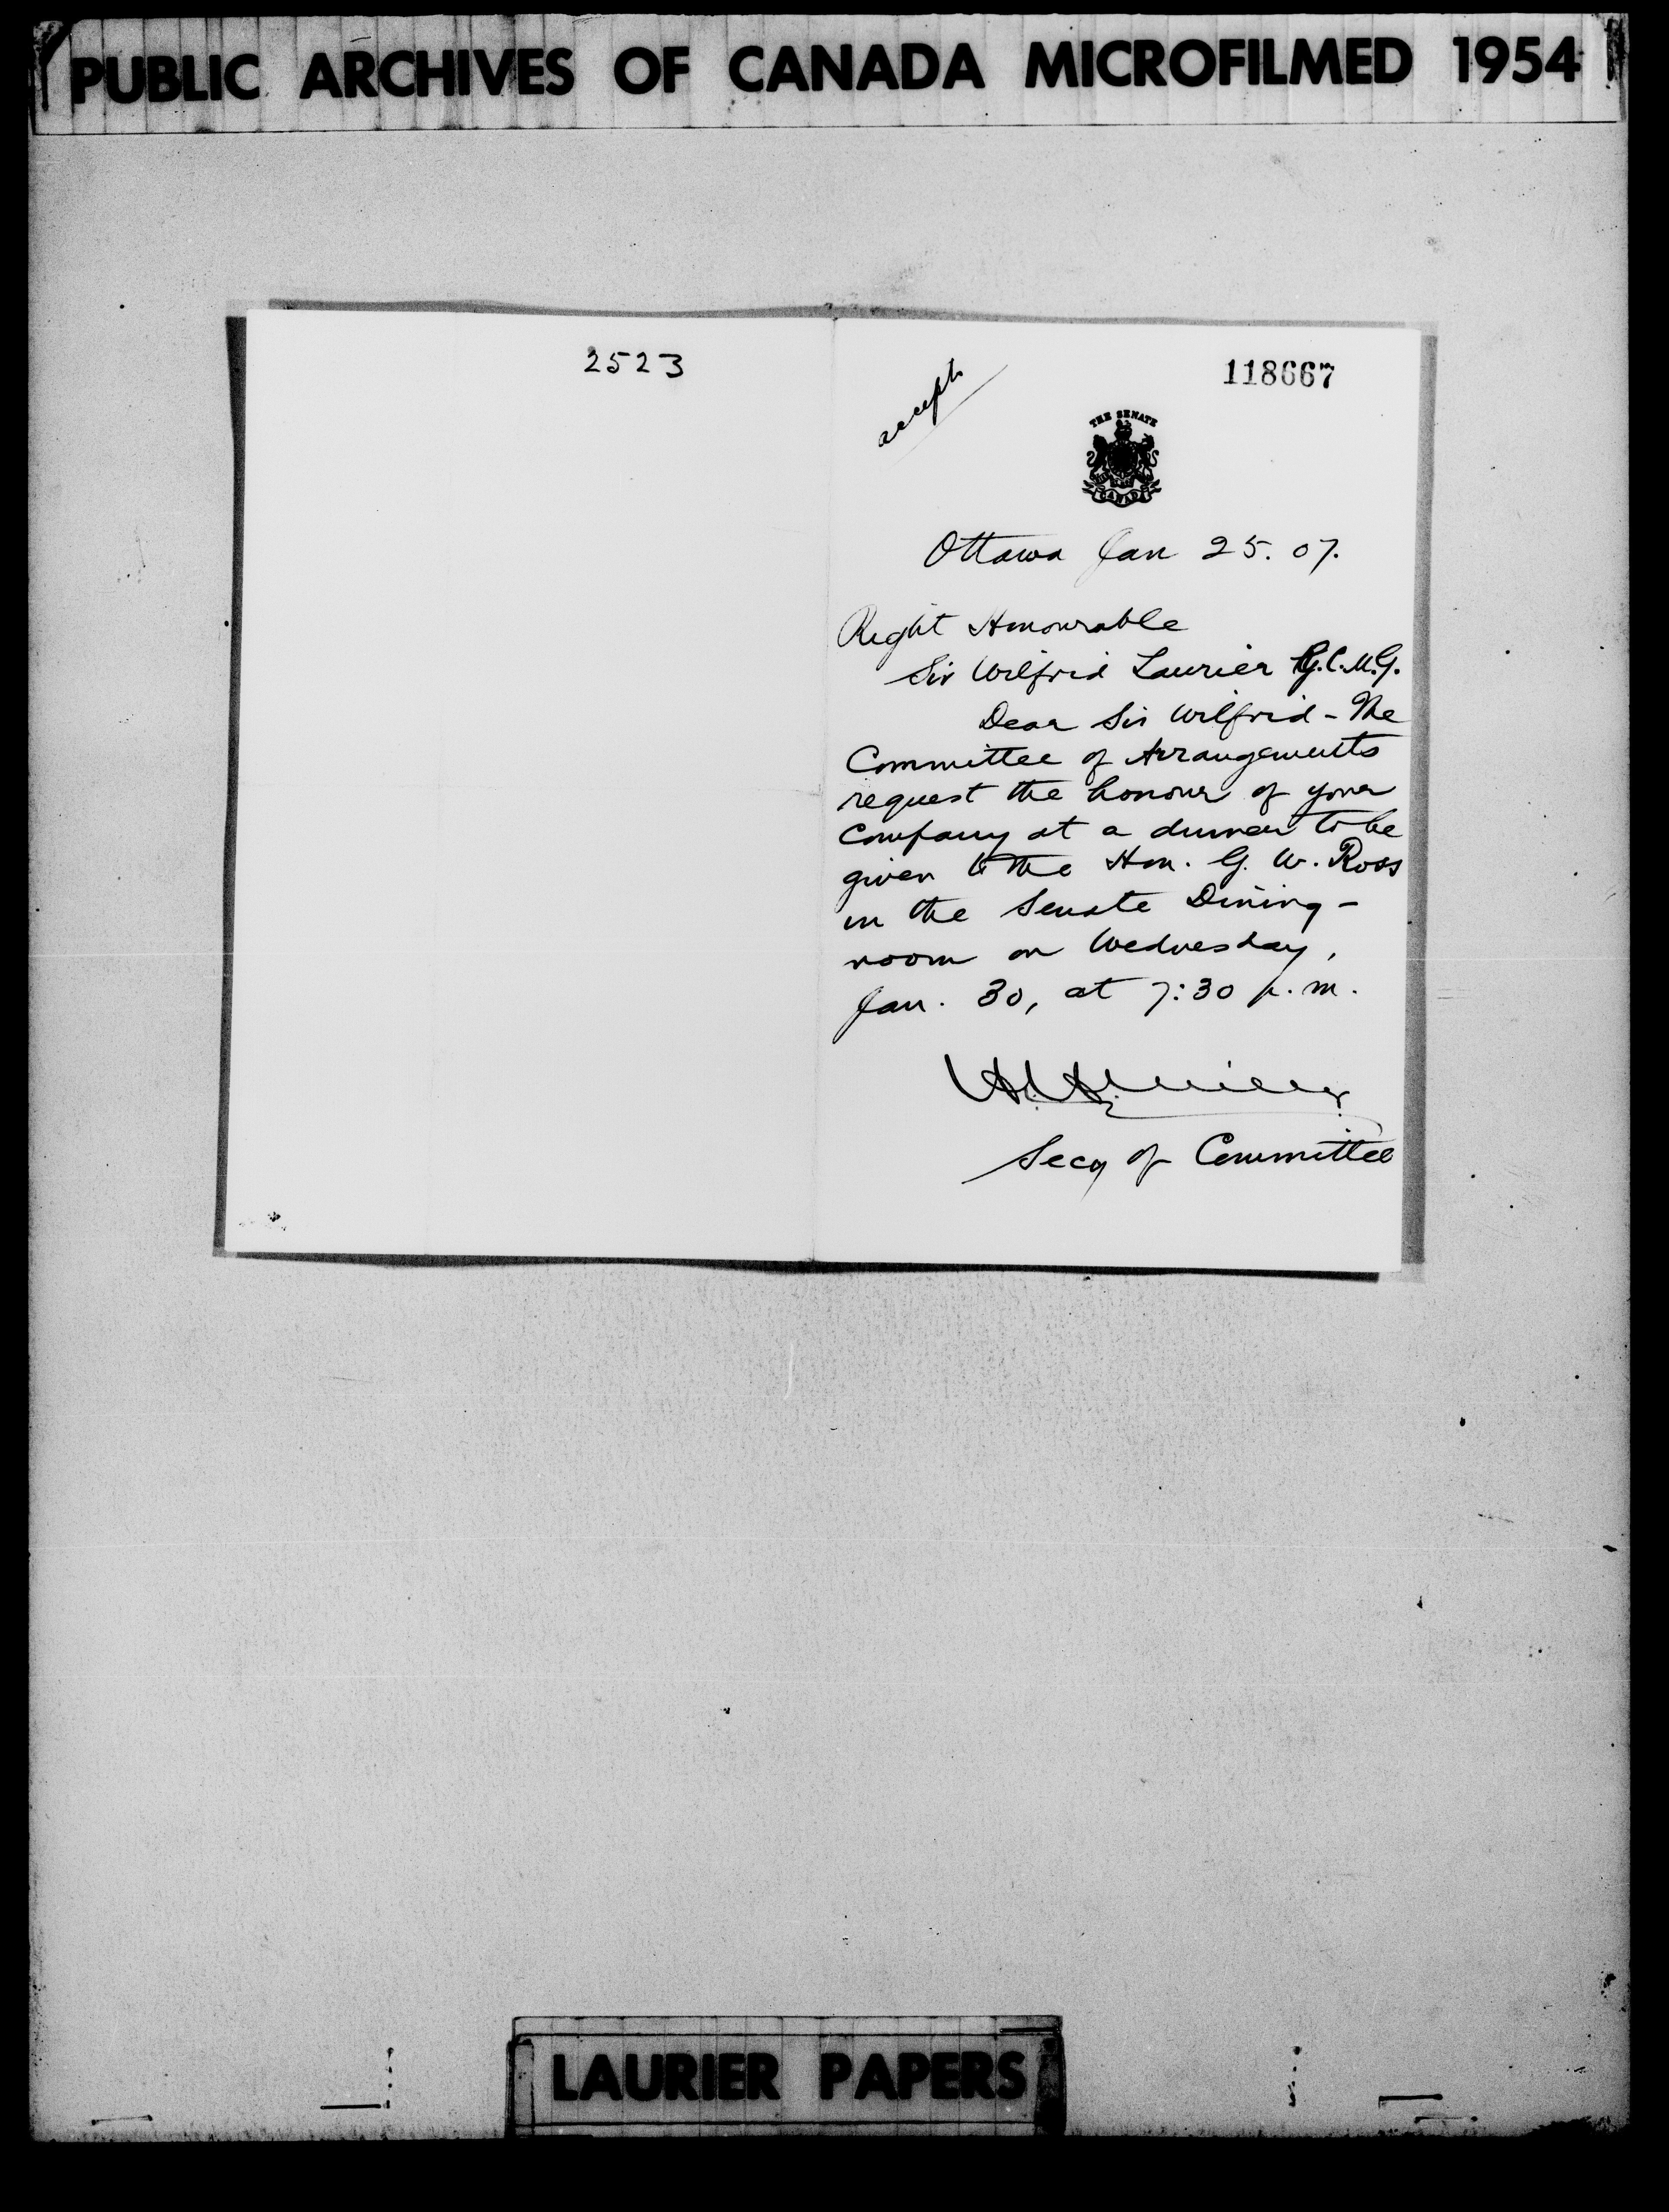 PUBLIC ARCHIVES OF CANADA MICROFILMED 1954
2523
accept
118667
THE SENATE
CANADA
Ottawa Jan 25. 07.
Right Honourable
Sir Wilfrid Laurier G.C.M.G.
Dear Sir Wilfrid - The
Committee of Arrangements
request the honour of your
Company at a dinner to be
given to the Hon. G. W. Ross
in the Senate Dining-
room on Wednesday,
Jan. 30, at 7:30 p.m.
Secy of Committee
LAURIER PAPERS